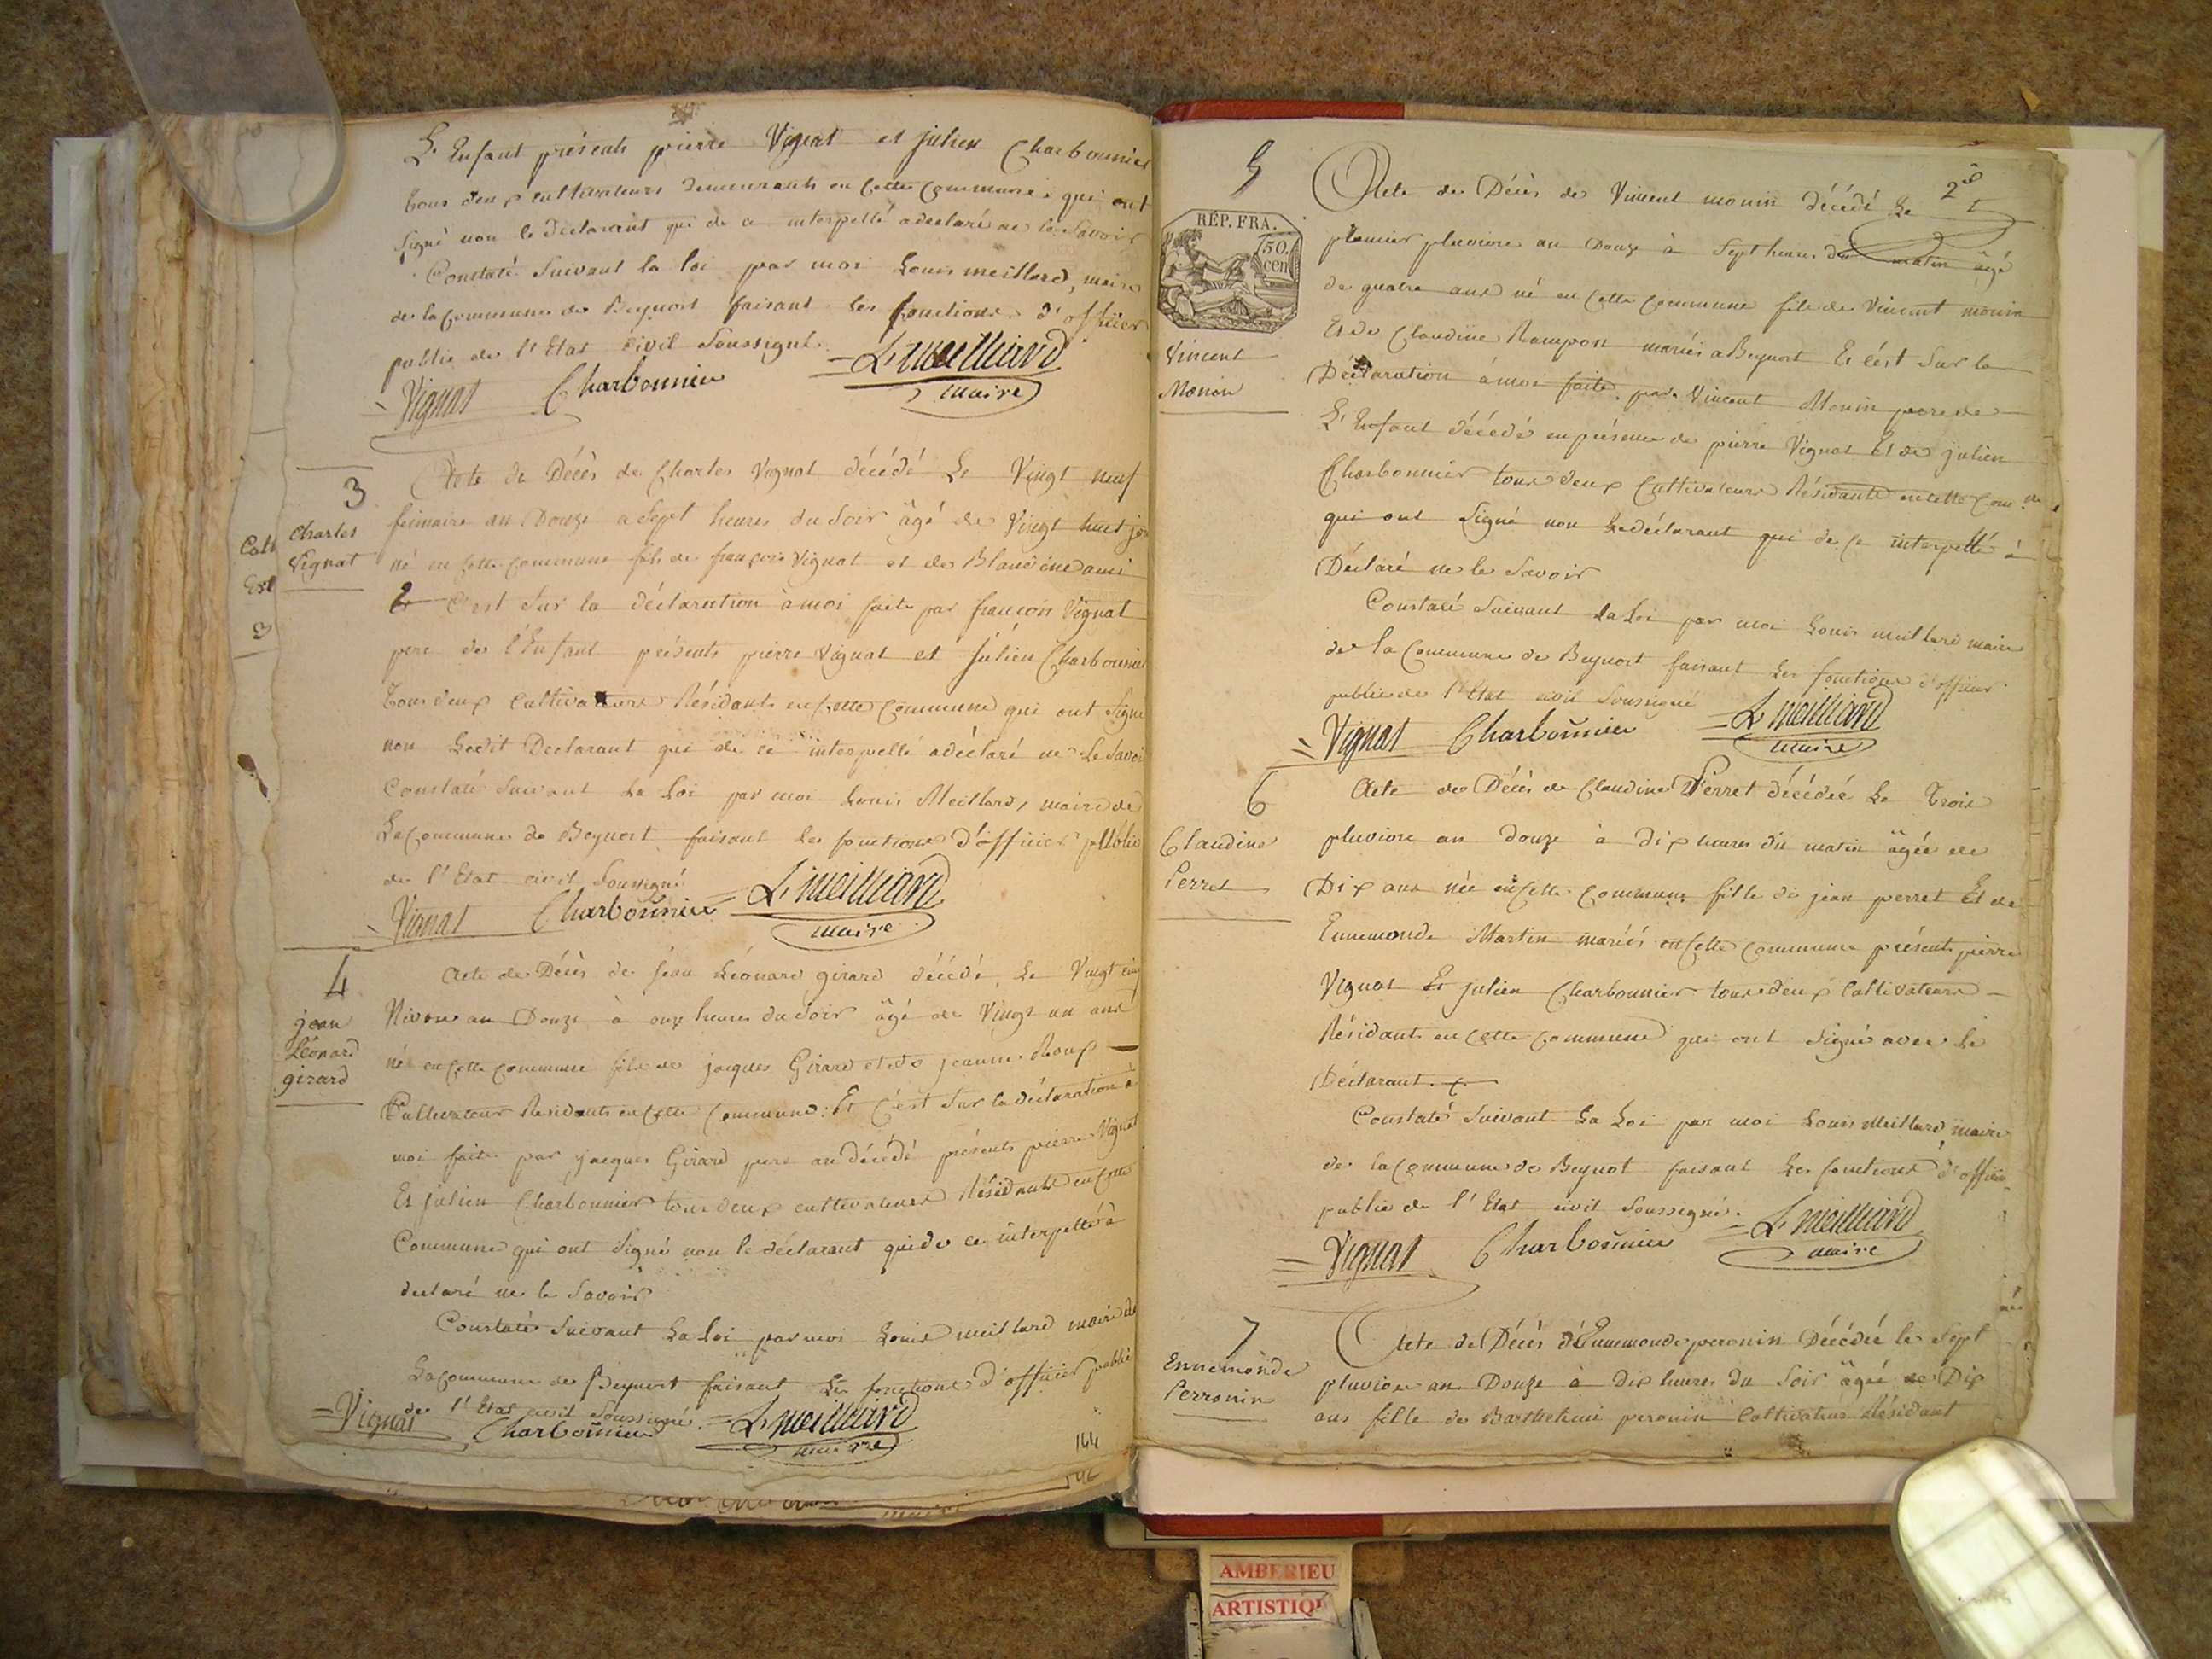 L'Enfant présents pierre Vignat et julien Charbonnier
tous deux cultivateurs demeurants en cette commune qui ont
signé non le déclarant qui de ce interpellé a déclaré ne le savoir
Constaté suivant la loi par moi Louis meillard, maire
de la commune de Beynost faisant les fonctions d'officier
public de l'Etat civil soussigné
Vignat Charbonnier L. meilliard
maire
3
Charles
Vignat
Acte de Décès de Charles Vignat décédé Le Vingt neuf
frimaire an Douze a Sept heures du soir âgé de Vingt huit
né en cette commune fils de françois Vignat et de Blandine
C'est sur la déclaration à moi faite par françois Vignat
pere de l'Enfant présents pierre Vignat et Julien Charbonnier
Tous deux Cultivateurs Résidants en cette Commune qui ont signé
non Ledit Declarant qui de ce interpellé a déclaré ne Le savoir
Constaté suivant La Loi par moi Louis Meillard, maire de
La commune de Beynost faisant les fonctions d'officier public
de l'Etat civil soussigné
Vignat Charbonnier L. meilliard
maire
4
jean
Léonard
girard
Acte de Décès de jean Léonard girard décédé Le Vingt cinq
Nivose an Douze à onze heures du soir âgé de Vingt un ans
né en cette commune fils de jacques Girard et de jeanne Roux
Cultivateur Résidants en cette Commune. Et C'est sur la déclaration à
moi faite par jacques Girard pere au décédé présents pierre Vignat
Et julien Charbonnier tous deux cultivateurs Résidants en cette
Commune qui ont signé non le déclarant qui de ce interpellé à
declaré ne le savoir
Constaté suivant La Loi par moi Louis meillard maire de
La commune de Beynost faisant Les fonctions d'officier public
de l'Etat civil soussigné
Vignat Charbonnier L. meilliard
maire
144
5
RÉP. FRA.
50.
cen
Vincent
Monin
Acte de Décès de Vincent monin décédé Le
premier pluviose an Douze à Sept heures du matin âgé
de quatre ans né en cette commune fils de Vincent monin
Et de Claudine Rampon mariés a Beynost Et c'est sur la
Déclaration à moi faite par Vincent Monin pere de
L'Enfant décédé en présence de pierre Vignat Et de julien
Charbonnier tous deux Cultivateurs Résidants en cette Com.ne
qui ont signé non Le déclarant qui de ce interpellé à
Déclaré ne le savoir
Constaté suivant la Loi par moi Louis meillard maire
de la Commune de Beynost faisant Les fonctions d'officier
public de l'Etat civil soussigné
Vignat Charbonnier L. meilliard
maire
6
Claudine
Perret
Acte de Décès de Claudine Perret décédée Le Trois
pluviose an douze à dix heures du matin âgée de
Dix ans née en cette commune fille de jean perret Et de
Ennemonde Martin mariés en cette commune présents pierre
Vignat Et julien Charbonnier tous deux Cultivateurs
Résidants en cette commune qui ont signé avec Le
Déclarant.
Constaté suivant La Loi par moi Louis Meillard, maire
de la commune de Beynost faisant Les fonctions d'officier
public de l'Etat civil soussigné.
Vignat Charbonnier L. meilliard
maire
7
Ennemonde
Perronin
Acte de Décès d'Ennemonde peronin Décédée le Sept
pluviose an Douze à dix heures du soir âgée de Dix
ans fille de Barthelemi peronin Cultivateur Résidant
AMBERIEU
ARTISTIQ